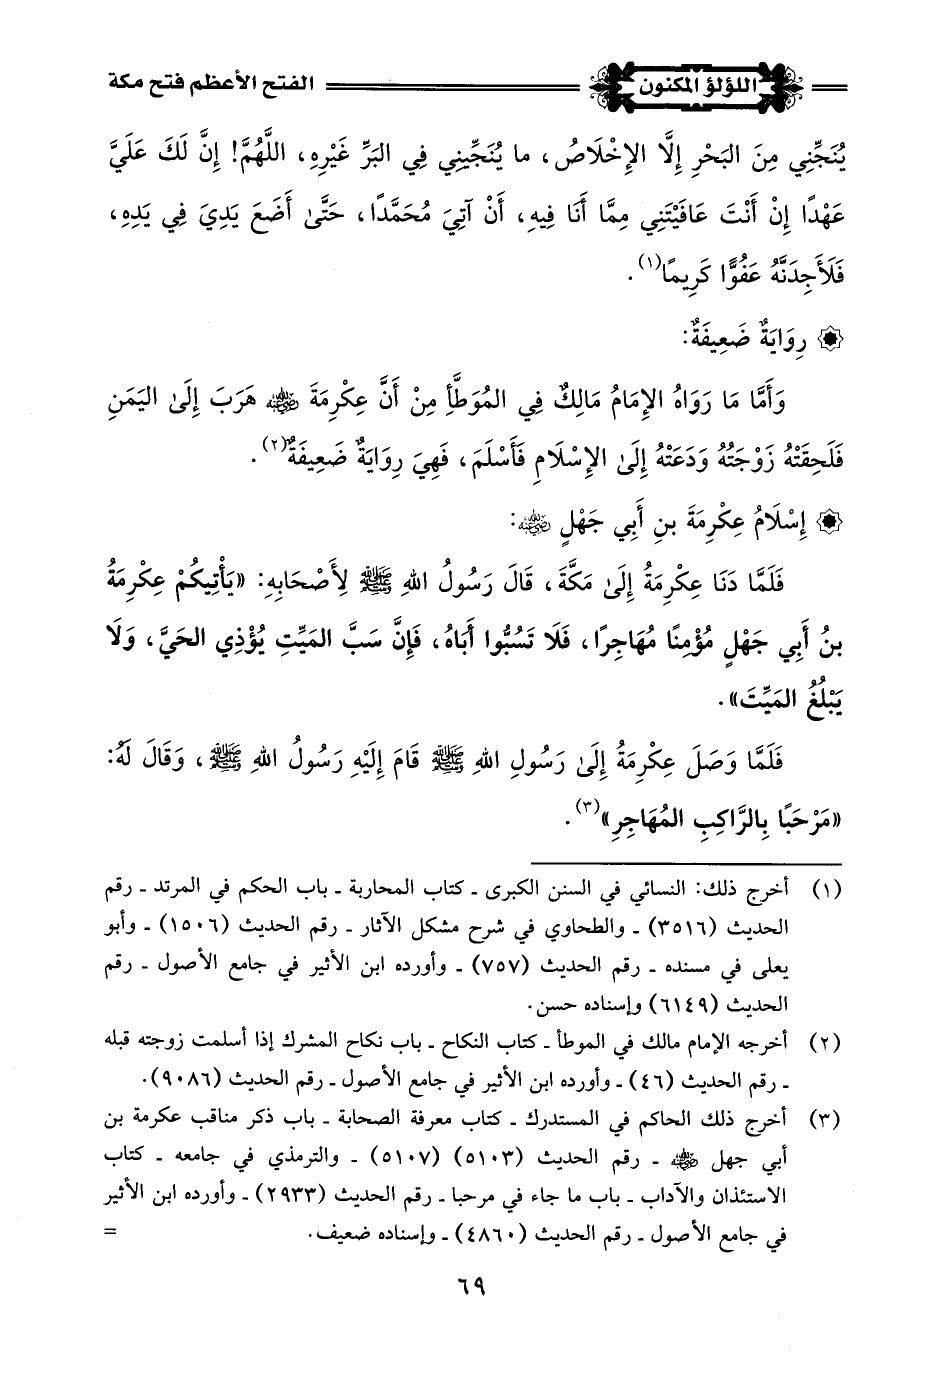 اللؤلؤ المكنون
الفتح الأعظم فتح مكة
يُنَجِّنِي مِنَ البَحْرِ إِلَّا الإِخْلَاصُ، ما يُنَجِّينِي فِي البَرِّ غَيْرِهِ، اللَّهُمَّ! إِنَّ لَكَ عَلَيَّ
عَهْدًا إِنْ أَنْتَ عَافَيْتَنِي مِمَّا أَنَا فِيهِ، أَنْ آتِيَ مُحَمَّدًا، حَتَّى أَضَعَ يَدِيَ فِي يَدِهِ،
فَلَأَجِدَنَّهُ عَفُوًّا كَرِيمًا(١).
رِوَايَةٌ ضَعِيفَةٌ:
وَأَمَّا مَا رَوَاهُ الإِمَامُ مَالِكٌ فِي المُوَطَّأِ مِنْ أَنَّ عِكْرِمَةَ رضي الله عنه هَرَبَ إِلَى اليَمَنِ
فَلَحِقَتْهُ زَوْجَتُهُ وَدَعَتْهُ إِلَى الإِسْلَامِ فَأَسْلَمَ، فَهِيَ رِوَايَةٌ ضَعِيفَةٌ(٢).
إِسْلَامُ عِكْرِمَةَ بنِ أَبِي جَهْلٍ رضي الله عنه:
فَلَمَّا دَنَا عِكْرِمَةُ إِلَى مَكَّةَ، قَالَ رَسُولُ اللهِ ﷺ لِأَصْحَابِهِ: «يَأْتِيكُمْ عِكْرِمَةُ
بنُ أَبِي جَهْلٍ مُؤْمِنًا مُهَاجِرًا، فَلَا تَسُبُّوا أَبَاهُ، فَإِنَّ سَبَّ المَيِّتِ يُؤْذِي الحَيَّ، وَلَا
يَبْلُغُ المَيِّتَ».
فَلَمَّا وَصَلَ عِكْرِمَةُ إِلَى رَسُولِ اللهِ ﷺ قَامَ إِلَيْهِ رَسُولُ اللهِ ﷺ، وَقَالَ لَهُ:
«مَرْحَبًا بِالرَّاكِبِ المُهَاجِرِ»(٣).
(١) أخرج ذلك: النسائي في السنن الكبرى ـ كتاب المحاربة ـ باب الحكم في المرتد ـ رقم
الحديث (٣٥١٦) ـ والطحاوي في شرح مشكل الآثار ـ رقم الحديث (١٥٠٦) ـ وأبو
يعلى في مسنده ـ رقم الحديث (٧٥٧) ـ وأورده ابن الأثير في جامع الأصول ـ رقم
الحديث (٦١٤٩) وإسناده حسن.
(٢) أخرجه الإمام مالك في الموطأ ـ كتاب النكاح ـ باب نكاح المشرك إذا أسلمت زوجته قبله
ـ رقم الحديث (٤٦) ـ وأورده ابن الأثير في جامع الأصول ـ رقم الحديث (٩٠٨٦).
(٣) أخرج ذلك الحاكم في المستدرك ـ كتاب معرفة الصحابة ـ باب ذكر مناقب عكرمة بن
أبي جهل رضي الله عنه ـ رقم الحديث (٥١٠٣) (٥١٠٧) ـ والترمذي في جامعه ـ كتاب
الاستئذان والآداب ـ باب ما جاء في مرحبا ـ رقم الحديث (٢٩٣٣) ـ وأورده ابن الأثير
في جامع الأصول ـ رقم الحديث (٤٨٦٠) ـ وإسناده ضعيف. =
٦٩